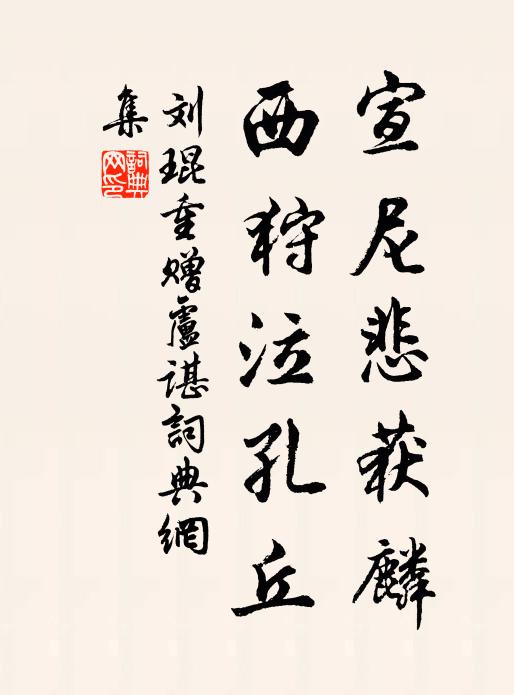 宣尼悲获麟
西狩泣孔丘
刘琨重赠盧谌詞典網
集
詞典网印